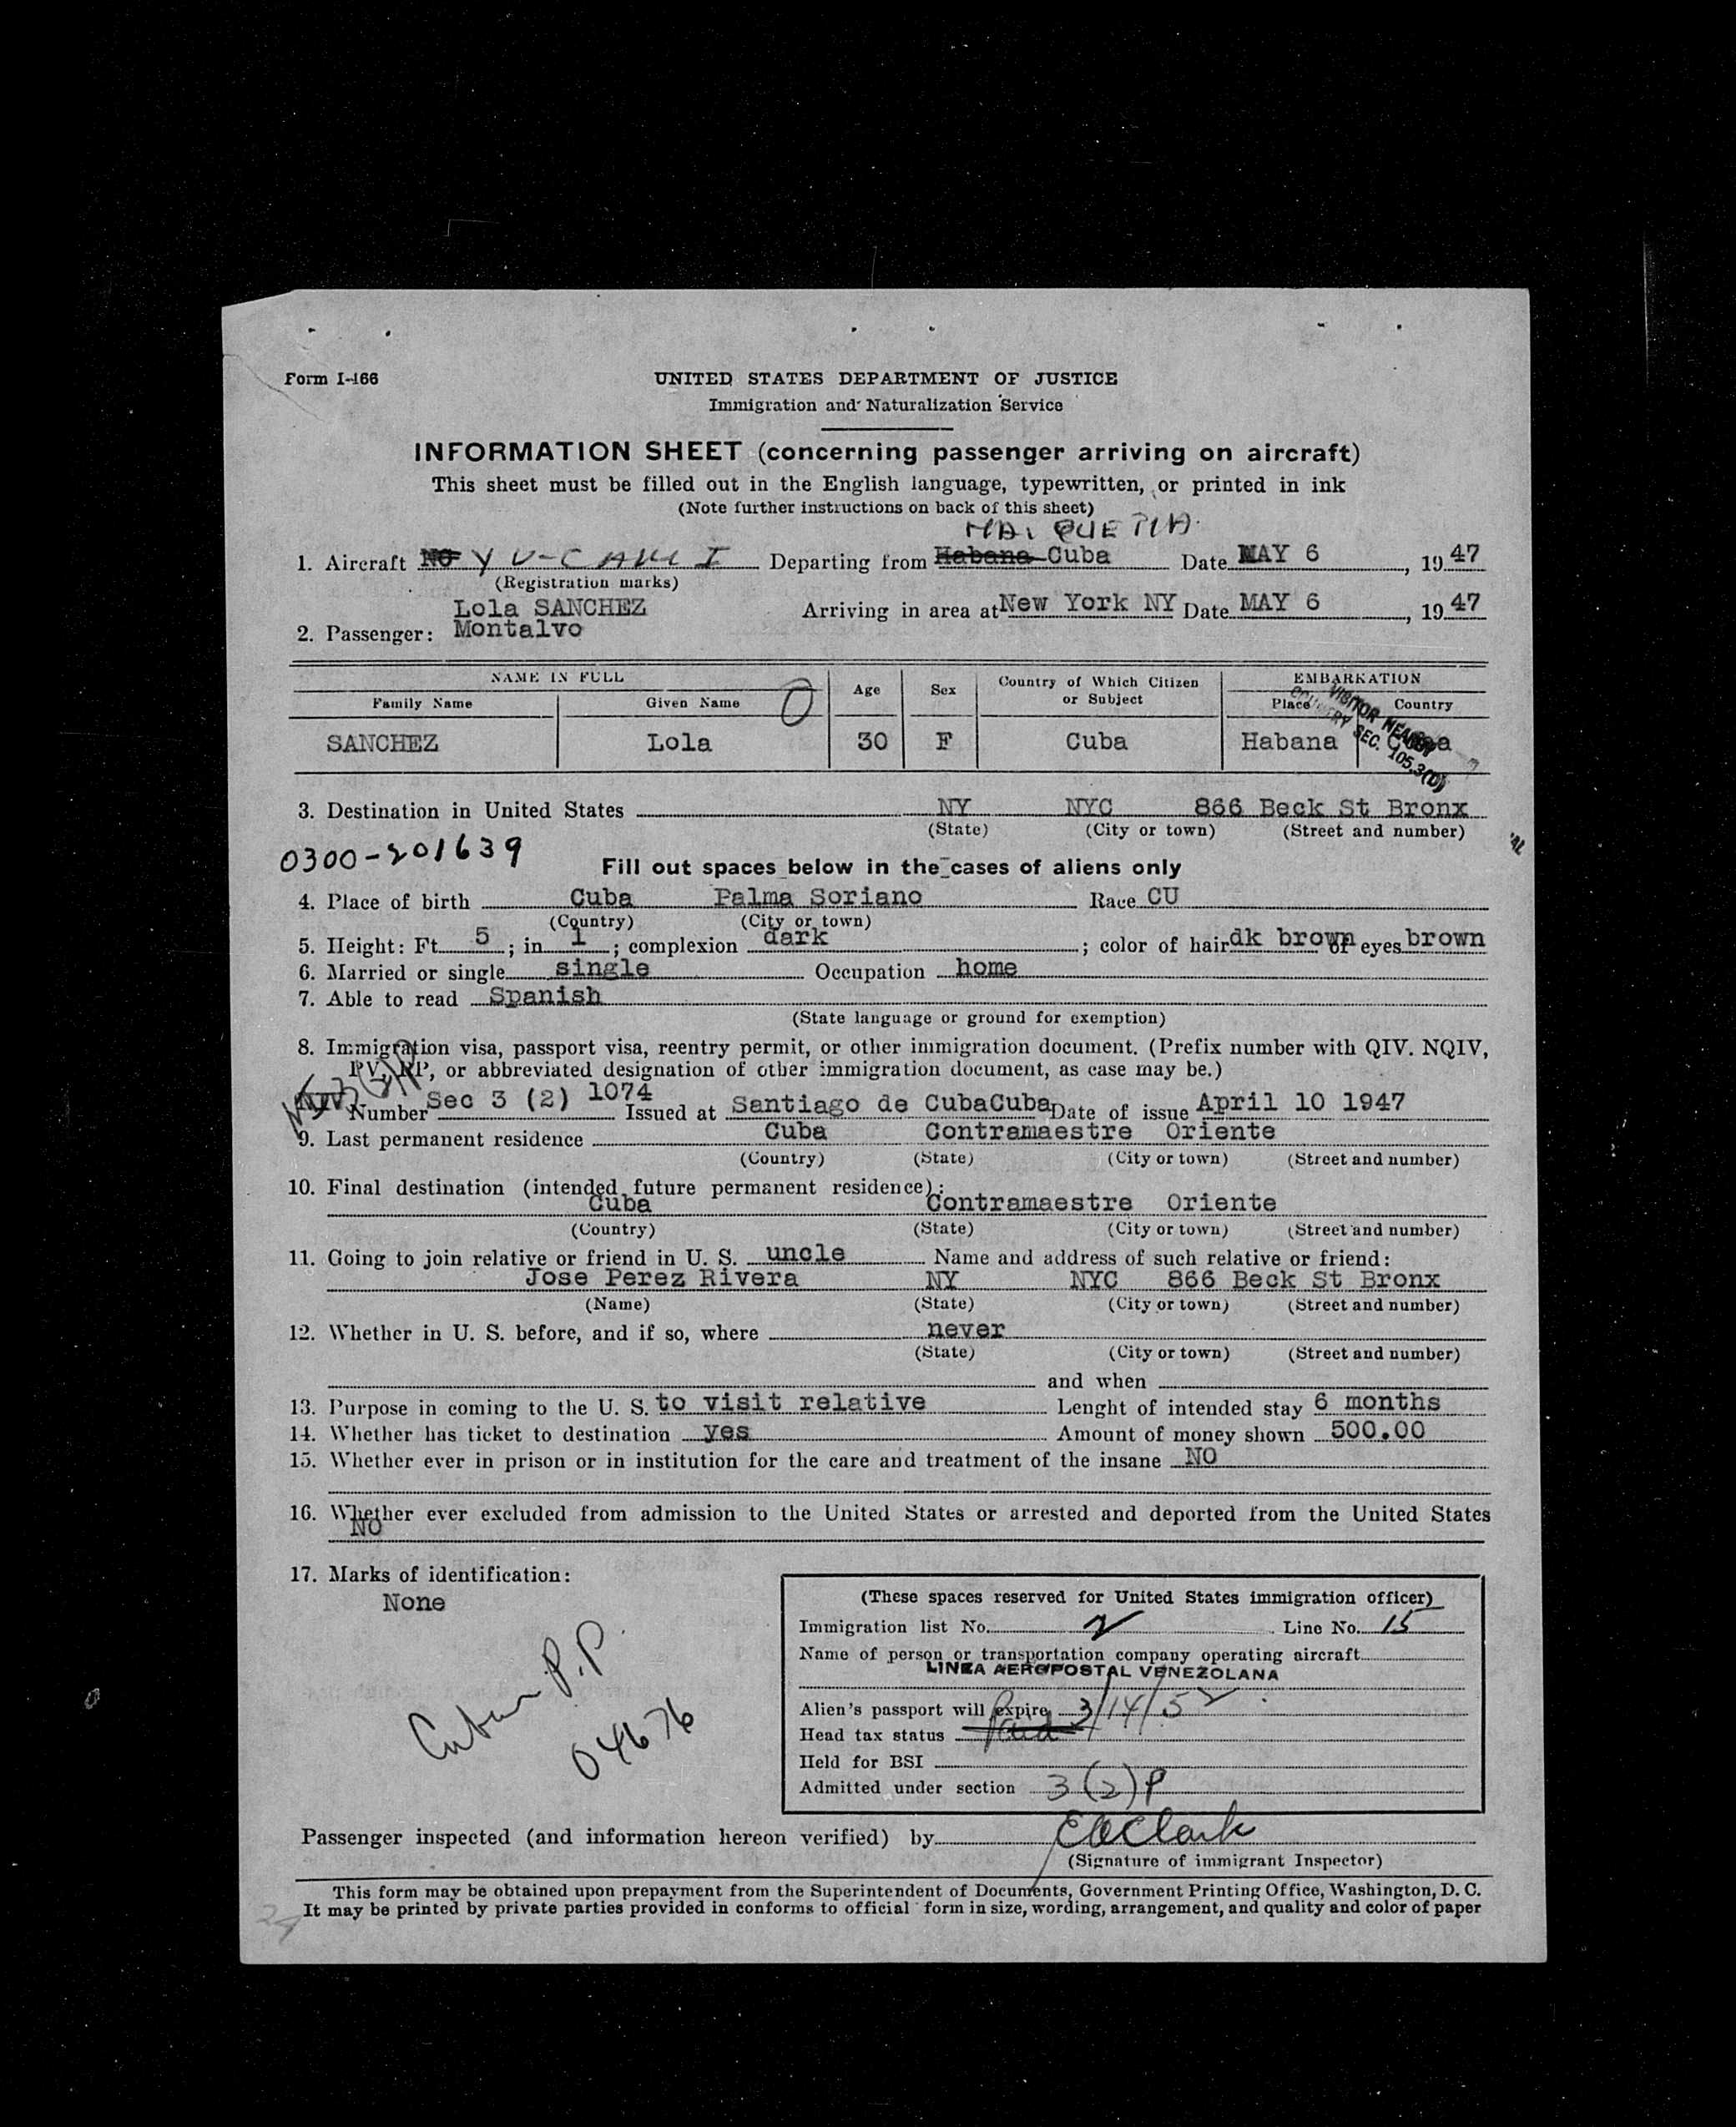 Form I-466
UNITED STATES DEPARTMENT OF JUSTICE
Immigration and Naturalization Service
INFORMATION SHEET (concerning passenger arriving on aircraft)
This sheet must be filled out in the English language, typewritten, or printed in ink
(Note further instructions on back of this sheet)
MAIQUETIA
1. Aircraft NO Departing from Habana Cuba Date MAY 6, 1947
(Registration marks)
Lola SANCHEZ Arriving in area at New York NY Date MAY 6, 1947
2. Passenger: Montalvo
NAME IN FULL Age Sex Country of Which Citizen or Subject EMBARKATION
Family Name Given Name Place Country
SANCHEZ Lola 30 F Cuba Habana Cuba
VISITOR
SEC. 105.3(D)
3. Destination in United States NY NYC 866 Beck St Bronx
(State) (City or town) (Street and number)
0300-201639
Fill out spaces below in the cases of aliens only
4. Place of birth Cuba Palma Soriano Race CU
(Country) (City or town)
5. Height: Ft. 5; in 1; complexion dark; color of hair dk brown of eyes brown
6. Married or single single Occupation home
7. Able to read Spanish
(State language or ground for exemption)
8. Immigration visa, passport visa, reentry permit, or other immigration document. (Prefix number with QIV. NQIV,
PV, RP, or abbreviated designation of other immigration document, as case may be.)
Number Sec 3 (2) 1074 Issued at Santiago de CubaCuba Date of issue April 10 1947
9. Last permanent residence Cuba Contramaestre Oriente
(Country) (State) (City or town) (Street and number)
10. Final destination (intended future permanent residence):
Cuba Contramaestre Oriente
(Country) (State) (City or town) (Street and number)
11. Going to join relative or friend in U. S. uncle Name and address of such relative or friend:
Jose Perez Rivera NY NYC 866 Beck St Bronx
(Name) (State) (City or town) (Street and number)
12. Whether in U. S. before, and if so, where never
(State) (City or town) (Street and number)
and when
13. Purpose in coming to the U. S. to visit relative Lenght of intended stay 6 months
14. Whether has ticket to destination yes Amount of money shown 500.00
15. Whether ever in prison or in institution for the care and treatment of the insane NO
16. Whether ever excluded from admission to the United States or arrested and deported from the United States
NO
17. Marks of identification:
None
Cuban P.P.
04676
(These spaces reserved for United States immigration officer)
Immigration list No. 2 Line No. 15
Name of person or transportation company operating aircraft
LINEA AEROPOSTAL VENEZOLANA
Alien's passport will expire 3/14/52
Head tax status Paid
Held for BSI
Admitted under section 3(2)P
Passenger inspected (and information hereon verified) by Clark
(Signature of immigrant Inspector)
This form may be obtained upon prepayment from the Superintendent of Documents, Government Printing Office, Washington, D. C.
It may be printed by private parties provided in conforms to official form in size, wording, arrangement, and quality and color of paper
24